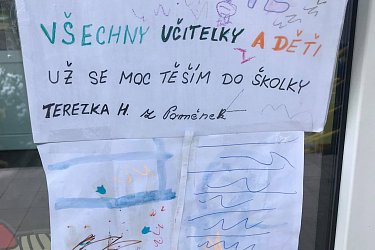 VŠECHNY UČITELKY A DĚTI
UŽ SE MOC TĚŠÍM DO ŠKOLKY
TEREZKA H. z Poměnek